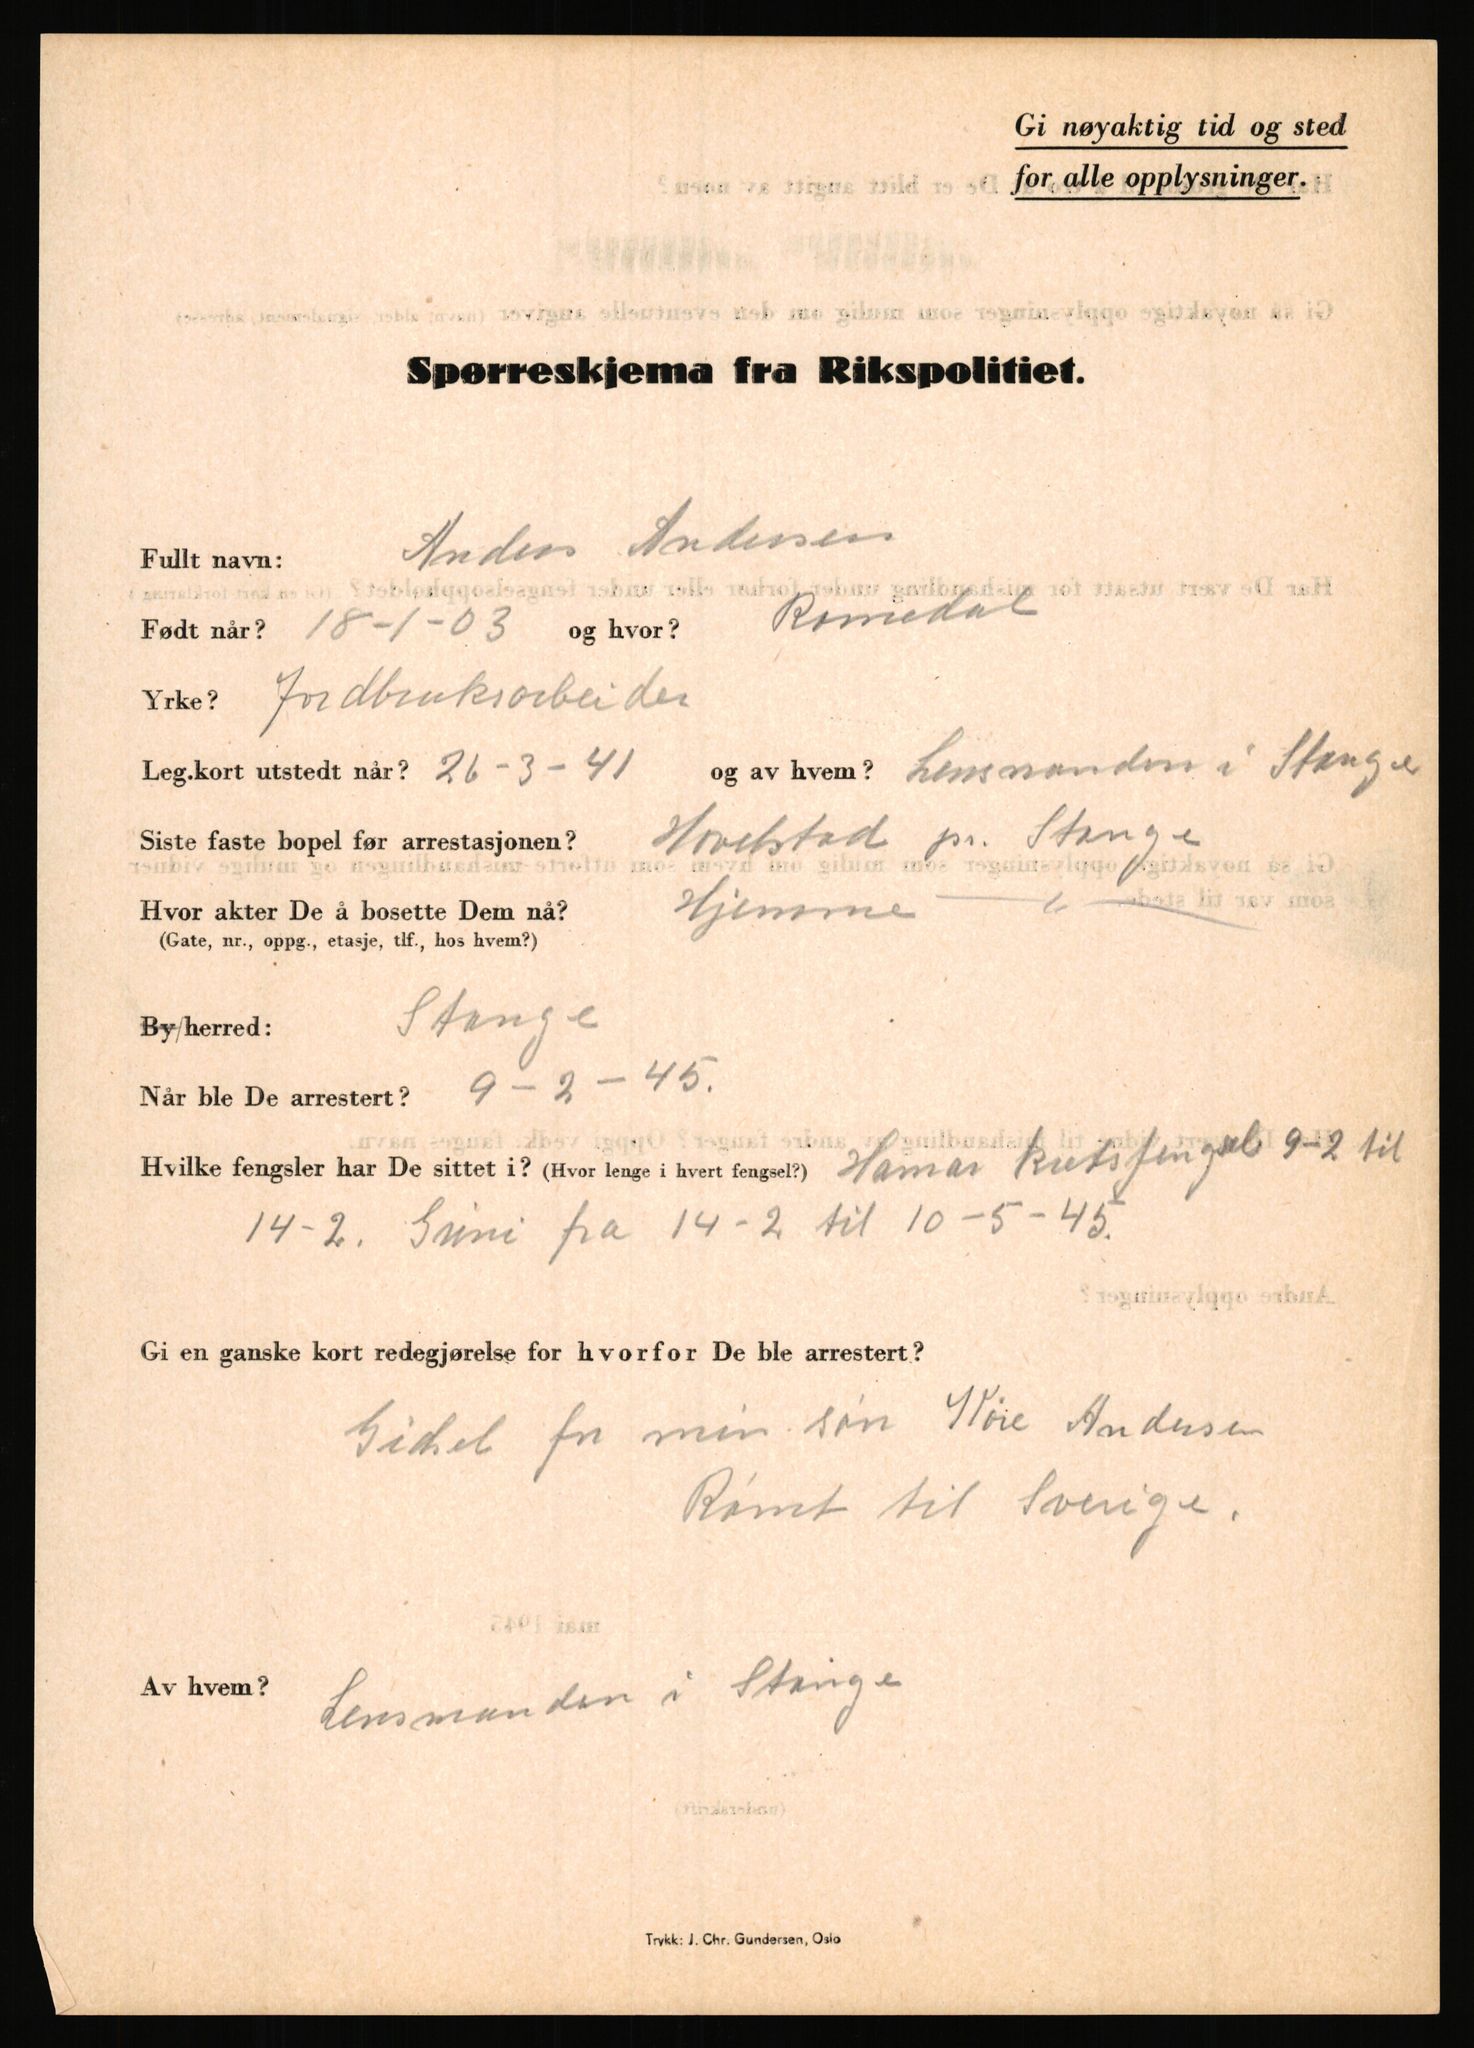 Gi nøyaktig tid og sted
for alle opplysninger.
Spørreskjema fra Rikspolitiet.
Fullt navn: Anders Andersen
Født når? 18-1-03 og hvor? Romedal
Yrke? Jordbruksarbeider
Leg.kort utstedt når? 26-3-41 og av hvem? Lensmanden i Stange
Siste faste bopel før arrestasjonen? Hovelstad pr. Stange
Hvor akter De å bosette Dem nå? Hjemme
(Gate, nr., oppg., etasje, tlf., hos hvem?)
By/herred: Stange
Når ble De arrestert? 9-2-45.
Hvilke fengsler har De sittet i? (Hvor lenge i hvert fengsel?) Hamar kretsfengsel 9-2 til
14-2. Grini fra 14-2 til 10-5-45.
Gi en ganske kort redegjørelse for hvorfor De ble arrestert?
Gidsel for min søn Kåre Andersen
Rømt til Sverige.
Av hvem? Lensmanden i Stange
Trykk: J. Chr. Gundersen, Oslo